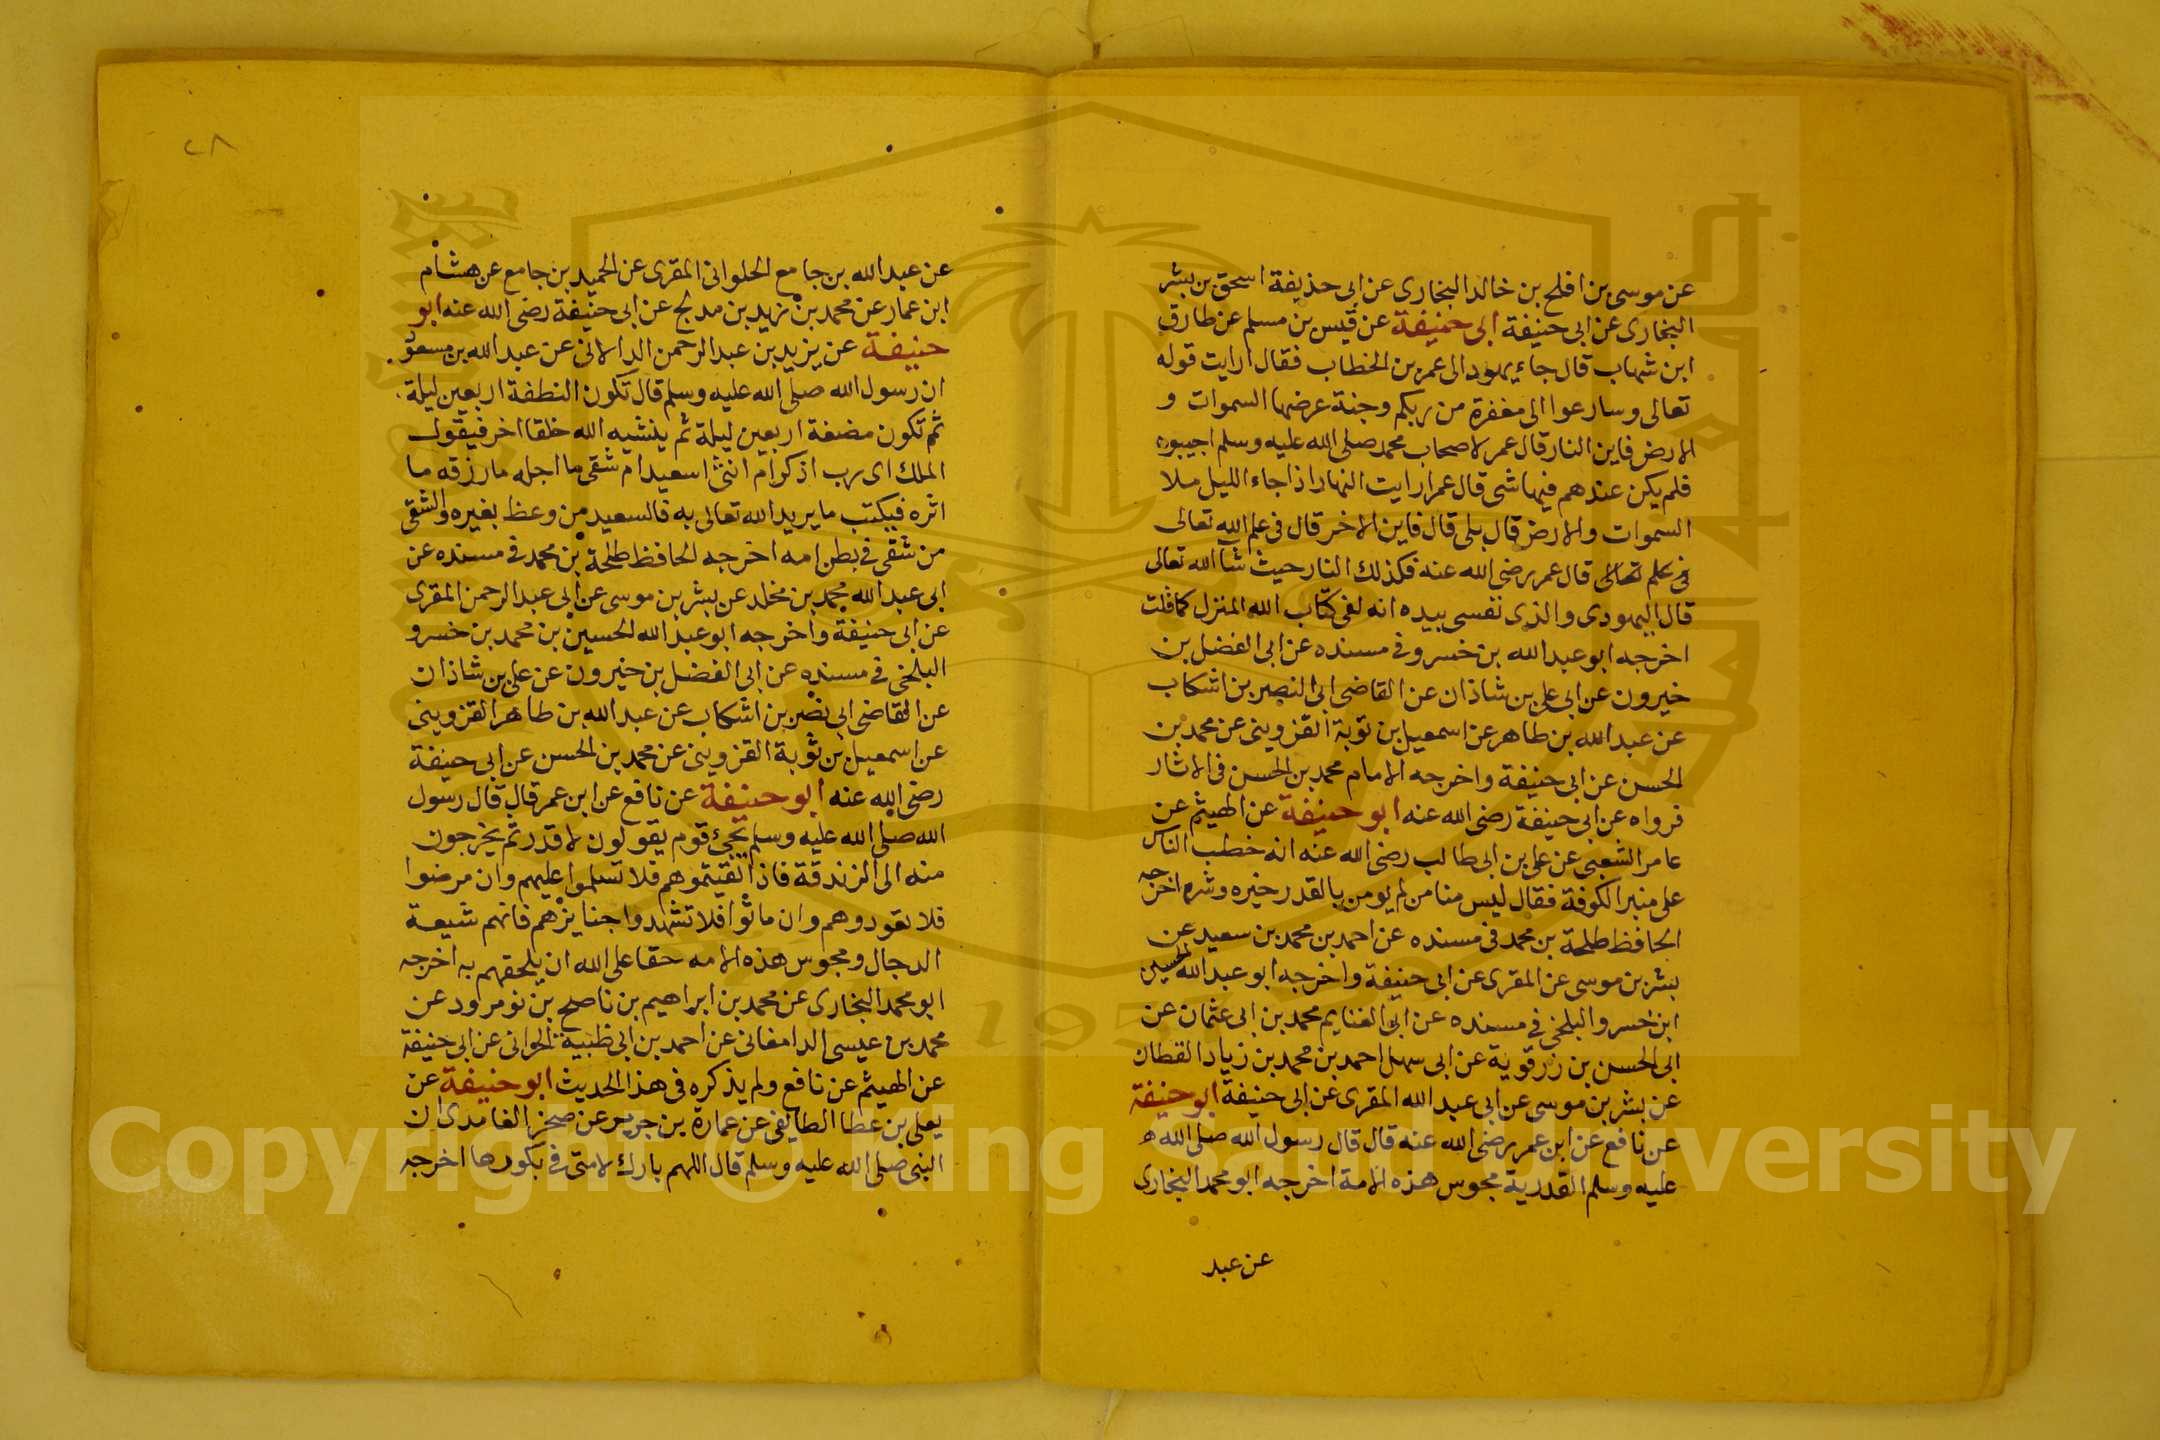 عن موسى بن افلح بن خالد البخارى عن ابى حذيفة اسحق بن بشر
البخارى عن ابى حنيفة ابى حنيفة عن قيس بن مسلم عن طارق
ابن شهاب قال جاء يهود الى عمر بن الخطاب فقال ارايت قوله
تعالى وسارعوا الى مغفرة من ربكم وجنة عرضها السموات و
الارض فاين النار قال عمر لاصحاب محمد صلى الله عليه وسلم اجيبوه
فلم يكن عندهم فيها شى قال عمر ارايت النهار اذا جاء الليل ملا
السموات والارض قال بلى قال فاين الاخر قال فى علم الله تعالى
فى علم تعالى قال عمر رضى الله عنه فكذلك النار حيث شآ الله تعالى
قال اليهودى والذى نفسى بيده انه لفى كتاب الله المنزل كما قلت
اخرجه ابو عبد الله بن خسرو فى مسنده عن ابى الفضل بن
خيرون عن ابى على بن شاذان عن القاضى ابى النصر بن اشكاب
عن عبد الله بن طاهر عن اسمعيل بن توبة القزوينى عن محمد بن
الحسن عن ابى حنيفة واخرجه الامام محمد بن الحسن فى الاثار
فرواه عن ابى حنيفة رضى الله عنه ابو حنيفة عن الهيثم عن
عامر الشعبى عن على بن ابى طالب رضى الله عنه انه خطب الناس
على منبر الكوفة فقال ليس منا من لم يومن بالقدر خيره وشره اخرجه
الحافظ طلحة بن محمد فى مسنده عن احمد بن محمد بن سعيد عن
بشر بن موسى عن المقرى عن ابى حنيفة واخرجه ابو عبد الله الحسين
ابن خسرو البلخى فى مسنده عن ابى الغنايم محمد بن ابى عثمان عن
ابى الحسن بن زرقوية عن ابى سهل احمد بن محمد بن زياد القطان
عن بشر بن موسى عن ابى عبد الله المقرى عن ابى حنيفة ابو حنيفة
عن نافع عن ابن عمر رضى الله عنه قال قال رسول الله صلى الله
عليه وسلم القدرية مجوس هذه الامة اخرجه ابو محمد البخارى
عن عبد
٢٨
عن عبد الله بن جامع الحلوانى المقرى عن الحميد بن جامع عن هشام
ابن عمار عن محمد بن يزيد بن مدلج عن ابى حنيفة رضى الله عنه ابو
حنيفة عن يزيد بن عبد الرحمن الدالانى عن عبد الله بن مسعود
ان رسول الله صلى الله عليه وسلم قال تكون النطفة اربعين ليلة
ثم تكون مضغة اربعين ليلة ثم ينشيه الله خلقا اخر فيقول
الملك اى رب اذكر ام انثى اسعيد ام شقى ما اجله ما رزقه ما
اثره فيكتب ما يريد الله تعالى به فالسعيد من وعظ بغيره والشقى
من شقى فى بطن امه اخرجه الحافظ طلحة بن محمد فى مسنده عن
ابى عبد الله محمد بن مخلد عن بشر بن موسى عن ابى عبد الرحمن المقرى
عن ابى حنيفة واخرجه ابو عبد الله الحسين بن محمد بن خسرو
البلخى فى مسنده عن ابى الفضل بن خيرون عن على بن شاذان
عن القاضى ابى نصر بن اشكاب عن عبد الله بن طاهر القزوينى
عن اسمعيل بن ثوبة القزوينى عن محمد بن الحسن عن ابى حنيفة
رضى الله عنه ابو حنيفة عن نافع عن ابن عمر قال قال رسول
الله صلى الله عليه وسلم يجئ قوم يقولون لا قدر ثم يخرجون
منه الى الزندقة فاذا لقيتموهم فلا تسلموا عليهم وان مرضوا
فلا تعودوهم وان ماثوا فلا تشهدوا جنايزهم فانهم شيعة
الدجال ومجوس هذه الامه حقا على الله ان يلحقهم به اخرجه
ابو محمد البخارى عن محمد بن ابراهيم بن ناصلح بن نومرود عن
محمد بن عيسى الدامغانى عن احمد بن ابى ظبية الجوانى عن ابى حنيفة
عن الهيثم عن نافع ولم يذكره فى هذا الحديث ابو حنيفة عن
يعلى بن عطا الطايفى عن عمارة بن جرير عن صخر الغامدى ان
النبى صلى الله عليه وسلم قال اللهم بارك لامتى فى بكورها اخرجه
Copyright © King Saud University
1957